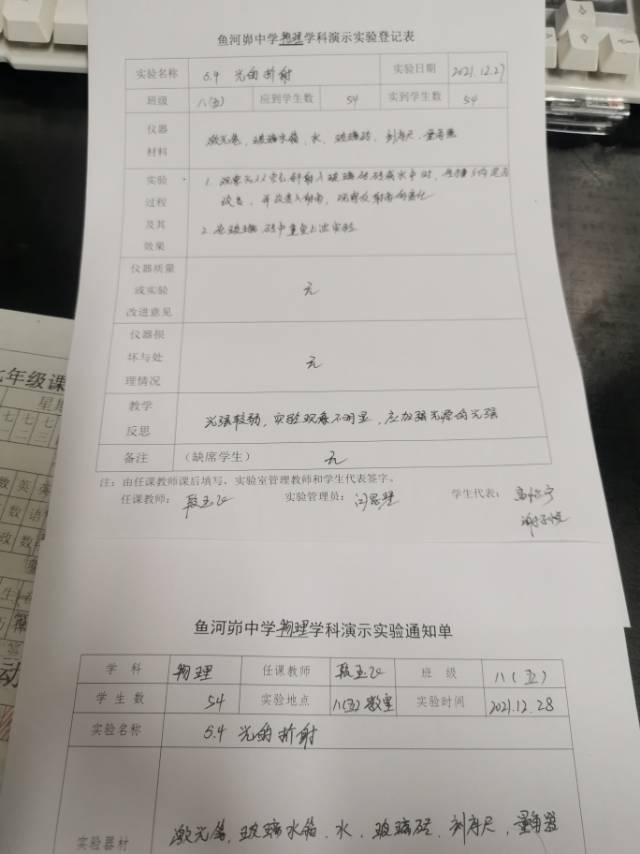 鱼河峁中学物理学科演示实验登记表
实验名称 5.4 光的折射 实验日期 2021.12.27
班级 八(五) 应到学生数 54 实到学生数 54
仪器
材料
激光笔、玻璃水箱、水、玻璃砖、刻度尺、量角器
实验
过程
及其
效果
1. 观察光从空气斜射入玻璃砖或水中时
改变入射角，观察折射角的变化
2. 在玻璃砖中重复上述实验
仪器质量
或实验
改进意见
无
仪器损
坏与处
理情况
无
教学
反思
光强较弱，实验现象不明显，应加强光源的光强
备注 (缺席学生) 无
注：由任课教师课后填写、实验室管理教师和学生代表签字。
任课教师： 实验管理员： 学生代表：
鱼河峁中学物理学科演示实验通知单
学科 物理 任课教师 班级 八(五)
学生数 54 实验地点 八(五)教室 实验时间 2021.12.28
实验名称 5.4 光的折射
实验器材 激光笔、玻璃水箱、水、玻璃砖、刻度尺、量角器
七年级课